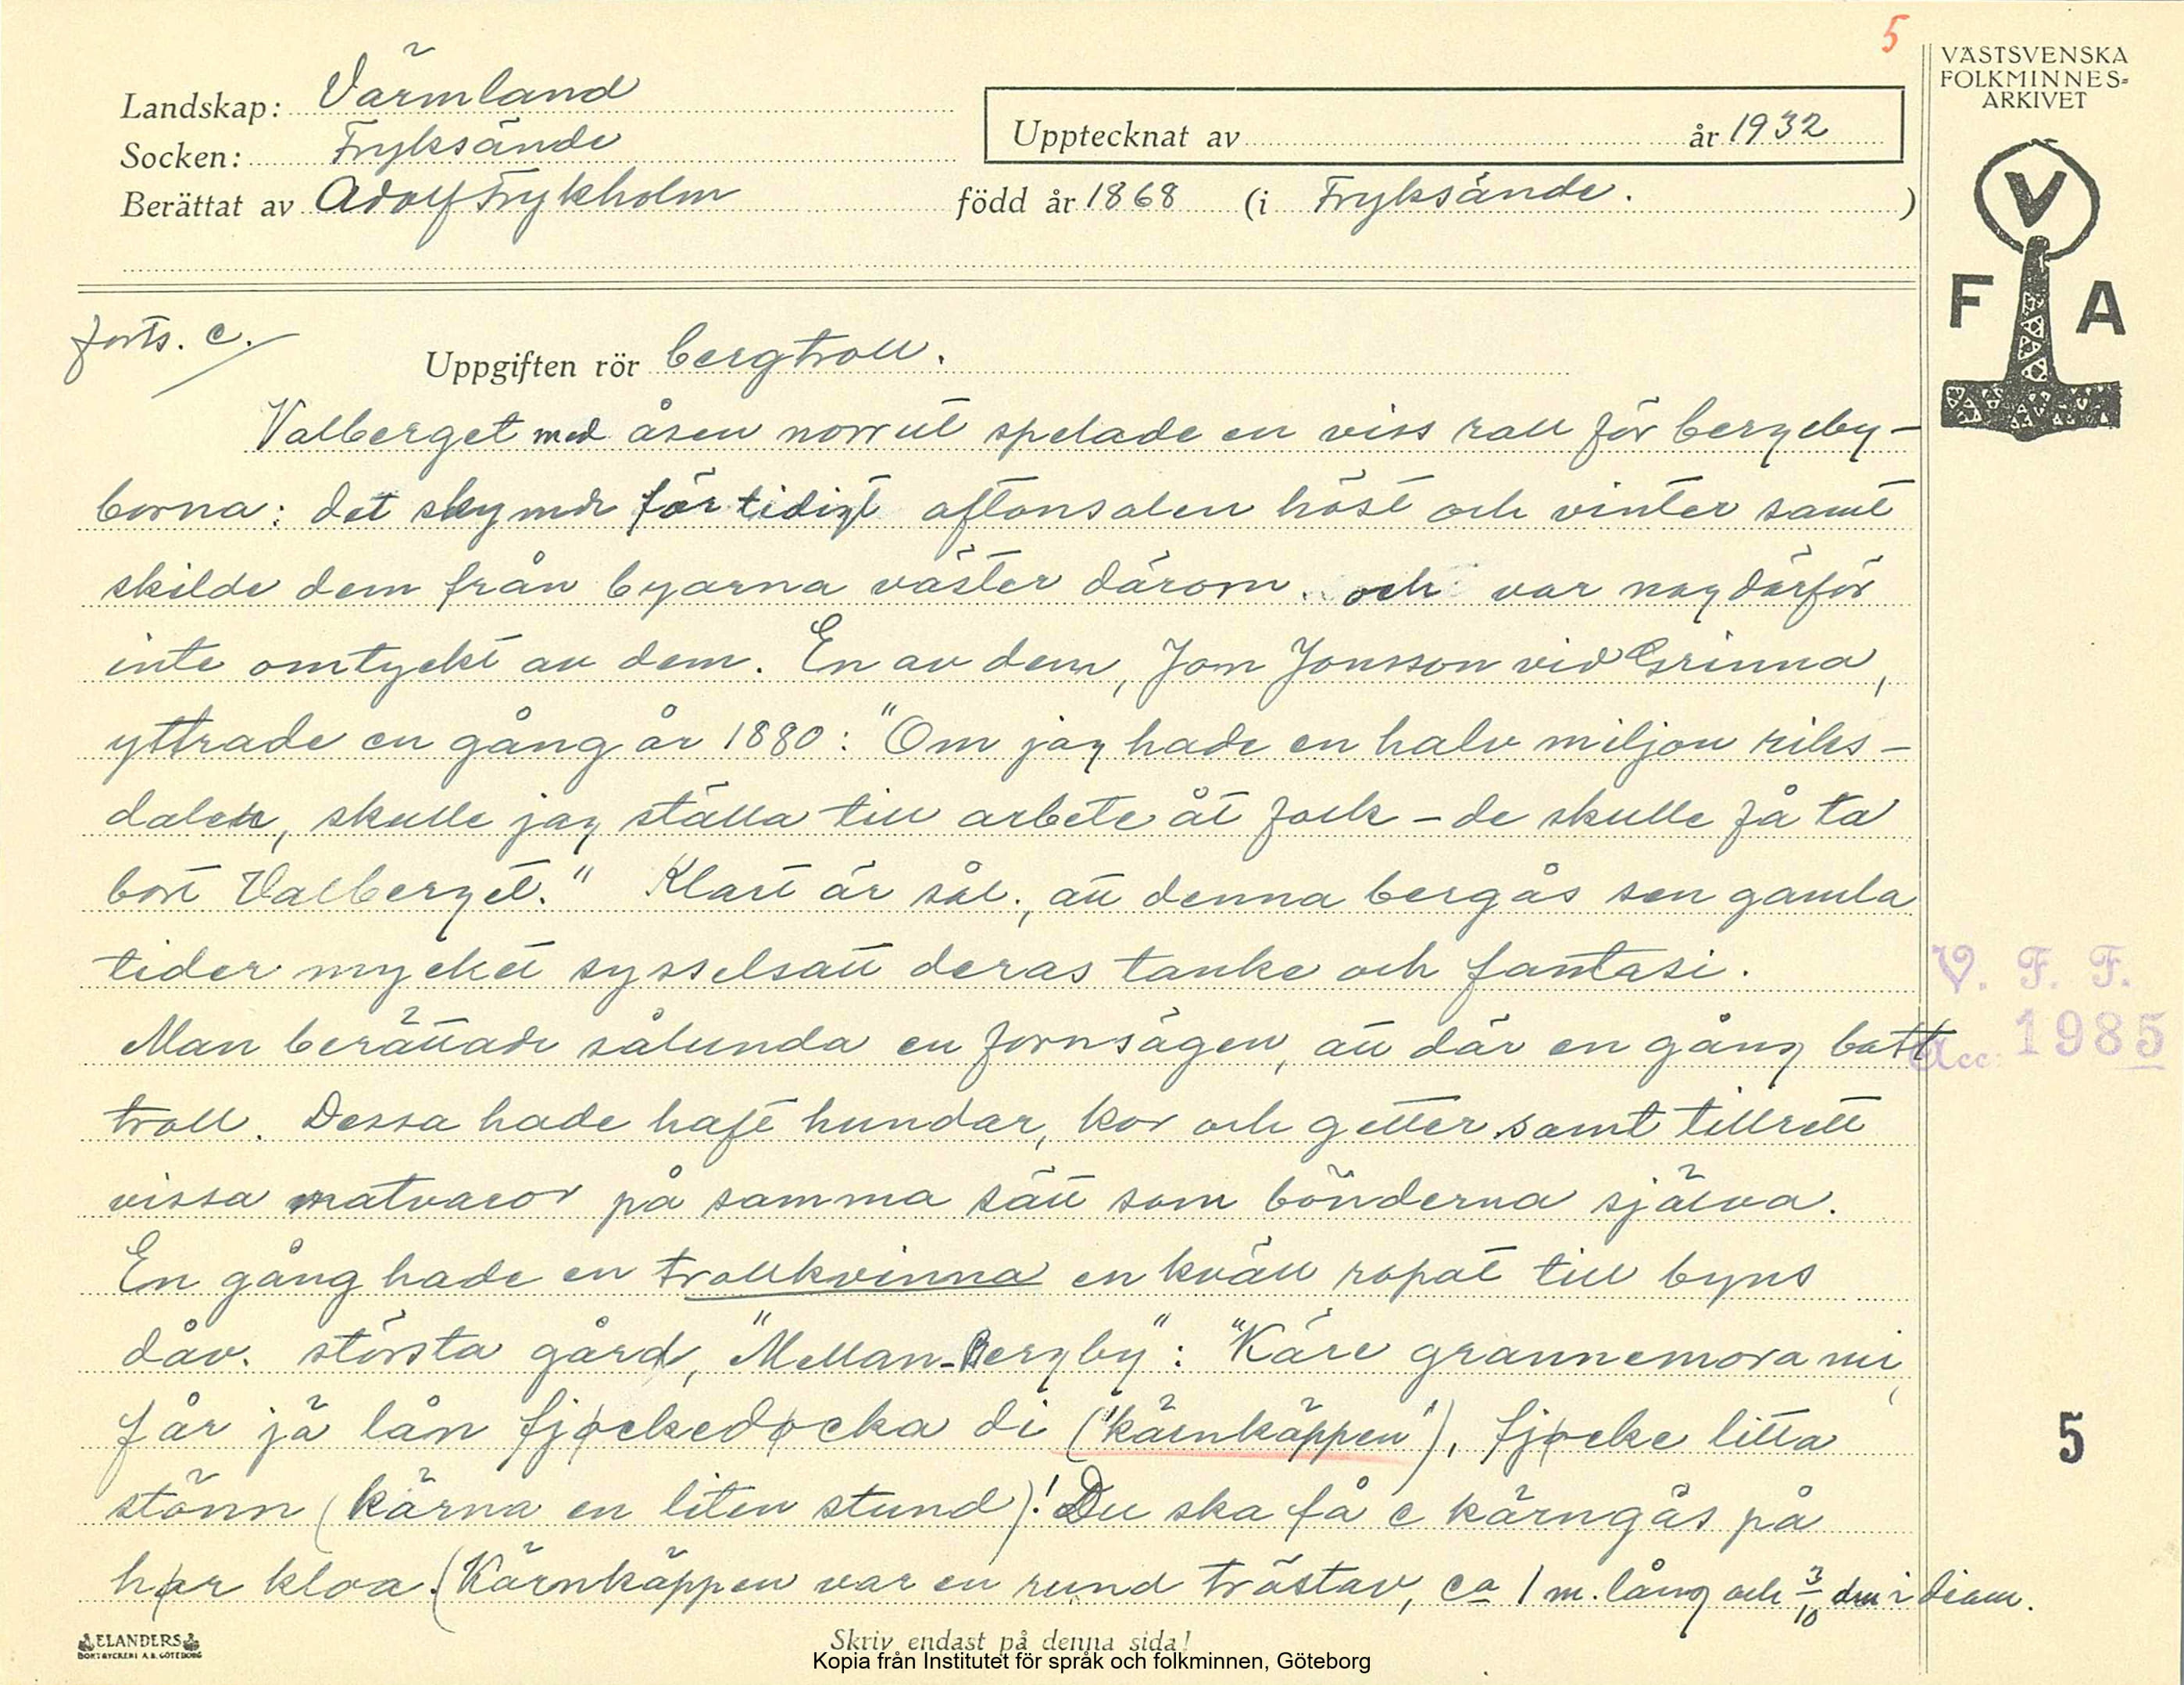 5
VÄSTSVENSKA
FOLKMINNES=
ARKIVET
V
F A
Landskap: Värmland
Socken: Fryksände
Upptecknat av år 1932
Berättat av Adolf Frykholm född år 1868 (i Fryksände. )
forts. c.
Uppgiften rör bergtroll.
Valberget med åsen norrut spelade en viss roll för bergeby-
borna: det skymde för tidigt aftonsolen höst och vinter samt
skilde dem från byarna väster därom och var nog därför
inte omtyckt av dem. En av dem, Jon Jonsson vid Grinna,
yttrade en gång år 1880: "Om jag hade en halv miljon riks-
daler, skulle jag ställa till arbete åt folk - de skulle få ta
bort Valberget." Klart är sål., att denna bergås sen gamla
tider mycket sysselsatt deras tanke och fantasi.
Man berättade sålunda en fornsägen, att där en gång bott
troll. Dessa hade haft hundar, kor och getter samt tillrett
vissa matvaror på samma sätt som bönderna själva.
En gång hade en trollkvinna en kväll ropat till byns
dåv. största gård, "Mellan-Bergby": "Käre grannemora mi,
får jä lån fjøckedøcka di ("kärnkäppen"), fjøcke litta
stönn (kärna en liten stund)! Du ska få e kärngås på
hør kloa. (Kärnkäppen var en rund trästav, ca 1 m. lång och 3/10 dm i diam.
V. F. F.
Acc. 1985
5
ELANDERS
BOKTRYCKERI A.B. GÖTEBORG
Skriv endast på denna sida!
Kopia från Institutet för språk och folkminnen, Göteborg